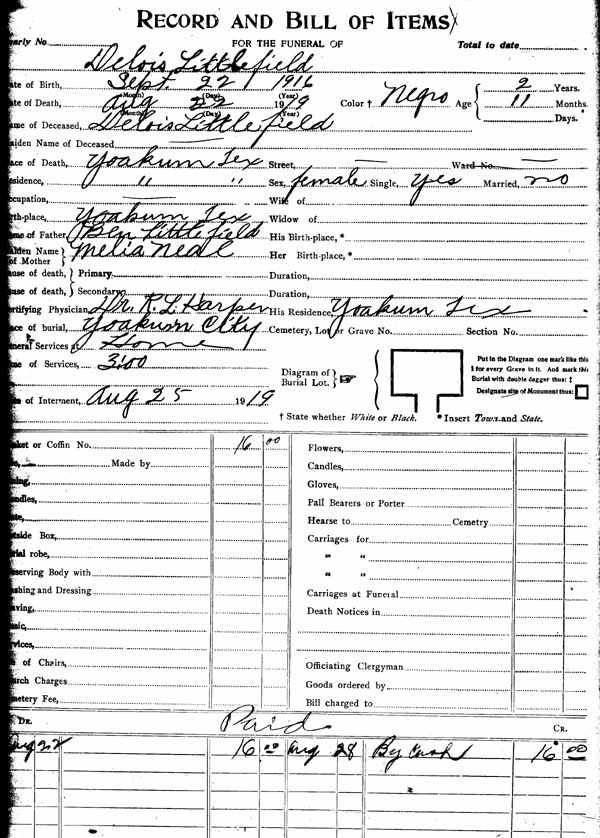 RECORD AND BILL OF ITEMS
early No. FOR THE FUNERAL OF Total to date
Delois Littlefield
ate of Birth, Sept 22 1916
(Month) (Day) (Year)
ate of Death, Aug 22 1919 Color † Negro Age { 2 Years. 11 Months. Days.
(Month) (Day) (Year)
ame of Deceased, Delois Littlefield
aiden Name of Deceased
ace of Death, Yoakum Tex Street, Ward No.
esidence, " " Sex, female Single, Yes Married, no
ccupation, Wife of
rth-place, Yoakum Tex Widow of
ame of Father, Ben Littlefield His Birth-place, *
aiden Name of Mother } Melia Neal Her Birth-place, *
ause of death, } Primary Duration,
ause of death, } Secondary Duration,
ertifying Physician, Dr. R L Harper His Residence, Yoakum Tex
ace of burial, Yoakum City Cemetery, Lot or Grave No. Section No.
neral Services at Home
me of Services, 3:00
Diagram of Burial Lot. }
Put in the Diagram one mark like this
I for every Grave in it. And mark this
Burial with double dagger thus: ‡
Designate site of Monument thus:
of Interment, Aug 25 1919
† State whether White or Black. * Insert Town and State.
sket or Coffin No. 16 00 Flowers,
Made by Candles,
ing, Gloves,
ndles, Pall Bearers or Porter
ate, Hearse to Cemetry
tside Box, Carriages for
rial robe, " "
eserving Body with " "
shing and Dressing Carriages at Funeral
aving, Death Notices in
sic,
rvices,
of Chairs, Officiating Clergyman
urch Charges Goods ordered by
metery Fee, Bill charged to
DR. Paid CR.
Aug 22 16 00 Aug 28 By Cash 16 00